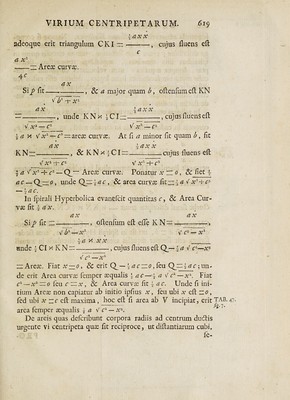 VIRIUM CENTRIPETARUM. 619
½axẋ
adeoque erit triangulum CKI = ———, cujus fluens est
c
ax²
—— = Areæ curvæ.
4c
ax
Si p sit ————, & a major quam b, ostensum est KN
√b²+x²
ax ½axẋ
= ————, unde KN × ½CI = ————, cujus fluens est
√x²−c² √x²−c²
½a × √x²−c² = areæ curvæ. At si a minor sit quam b, sit
ax ½axẋ
KN = ————, & KN × ½CI = ———— cujus fluens est
√x²+c² √x²+c²
½a√x²+c² − Q = Areæ curvæ. Ponatur x = o, & fiet ½
ac − Q = o, unde Q = ½ac, & area curvæ sit = ½a√x²+c²
− ½ac.
In spirali Hyperbolica evanescit quantitas c, & Area Cur-
væ fit ½ax.
ax ax
Si p sit ————, ostensum est esse KN = ————,
√b²−x² √c²−x²
½a × xẋ
unde ½CI × KN = ————, cujus fluens est Q − ½a√c²−x²
√c²−x²
= Areæ. Fiat x = o, & erit Q − ½ac = o, seu Q = ½ac; un-
de erit Area curvæ semper æqualis ½ac − ½a√c²−x². Fiat
c²−x² = o seu c = x, & Area curvæ fit ½ac. Unde si ini-
tium Areæ non capiatur ab initio ipsius x, seu ubi x est = o,
sed ubi x = c est maxima, hoc est si area ab V incipiat, erit TAB. 47.
area semper æqualis ½a√c²−x².
De areis quas describunt corpora radiis ad centrum ductis
urgente vi centripeta quæ sit reciproce, ut distantiarum cubi,
se-